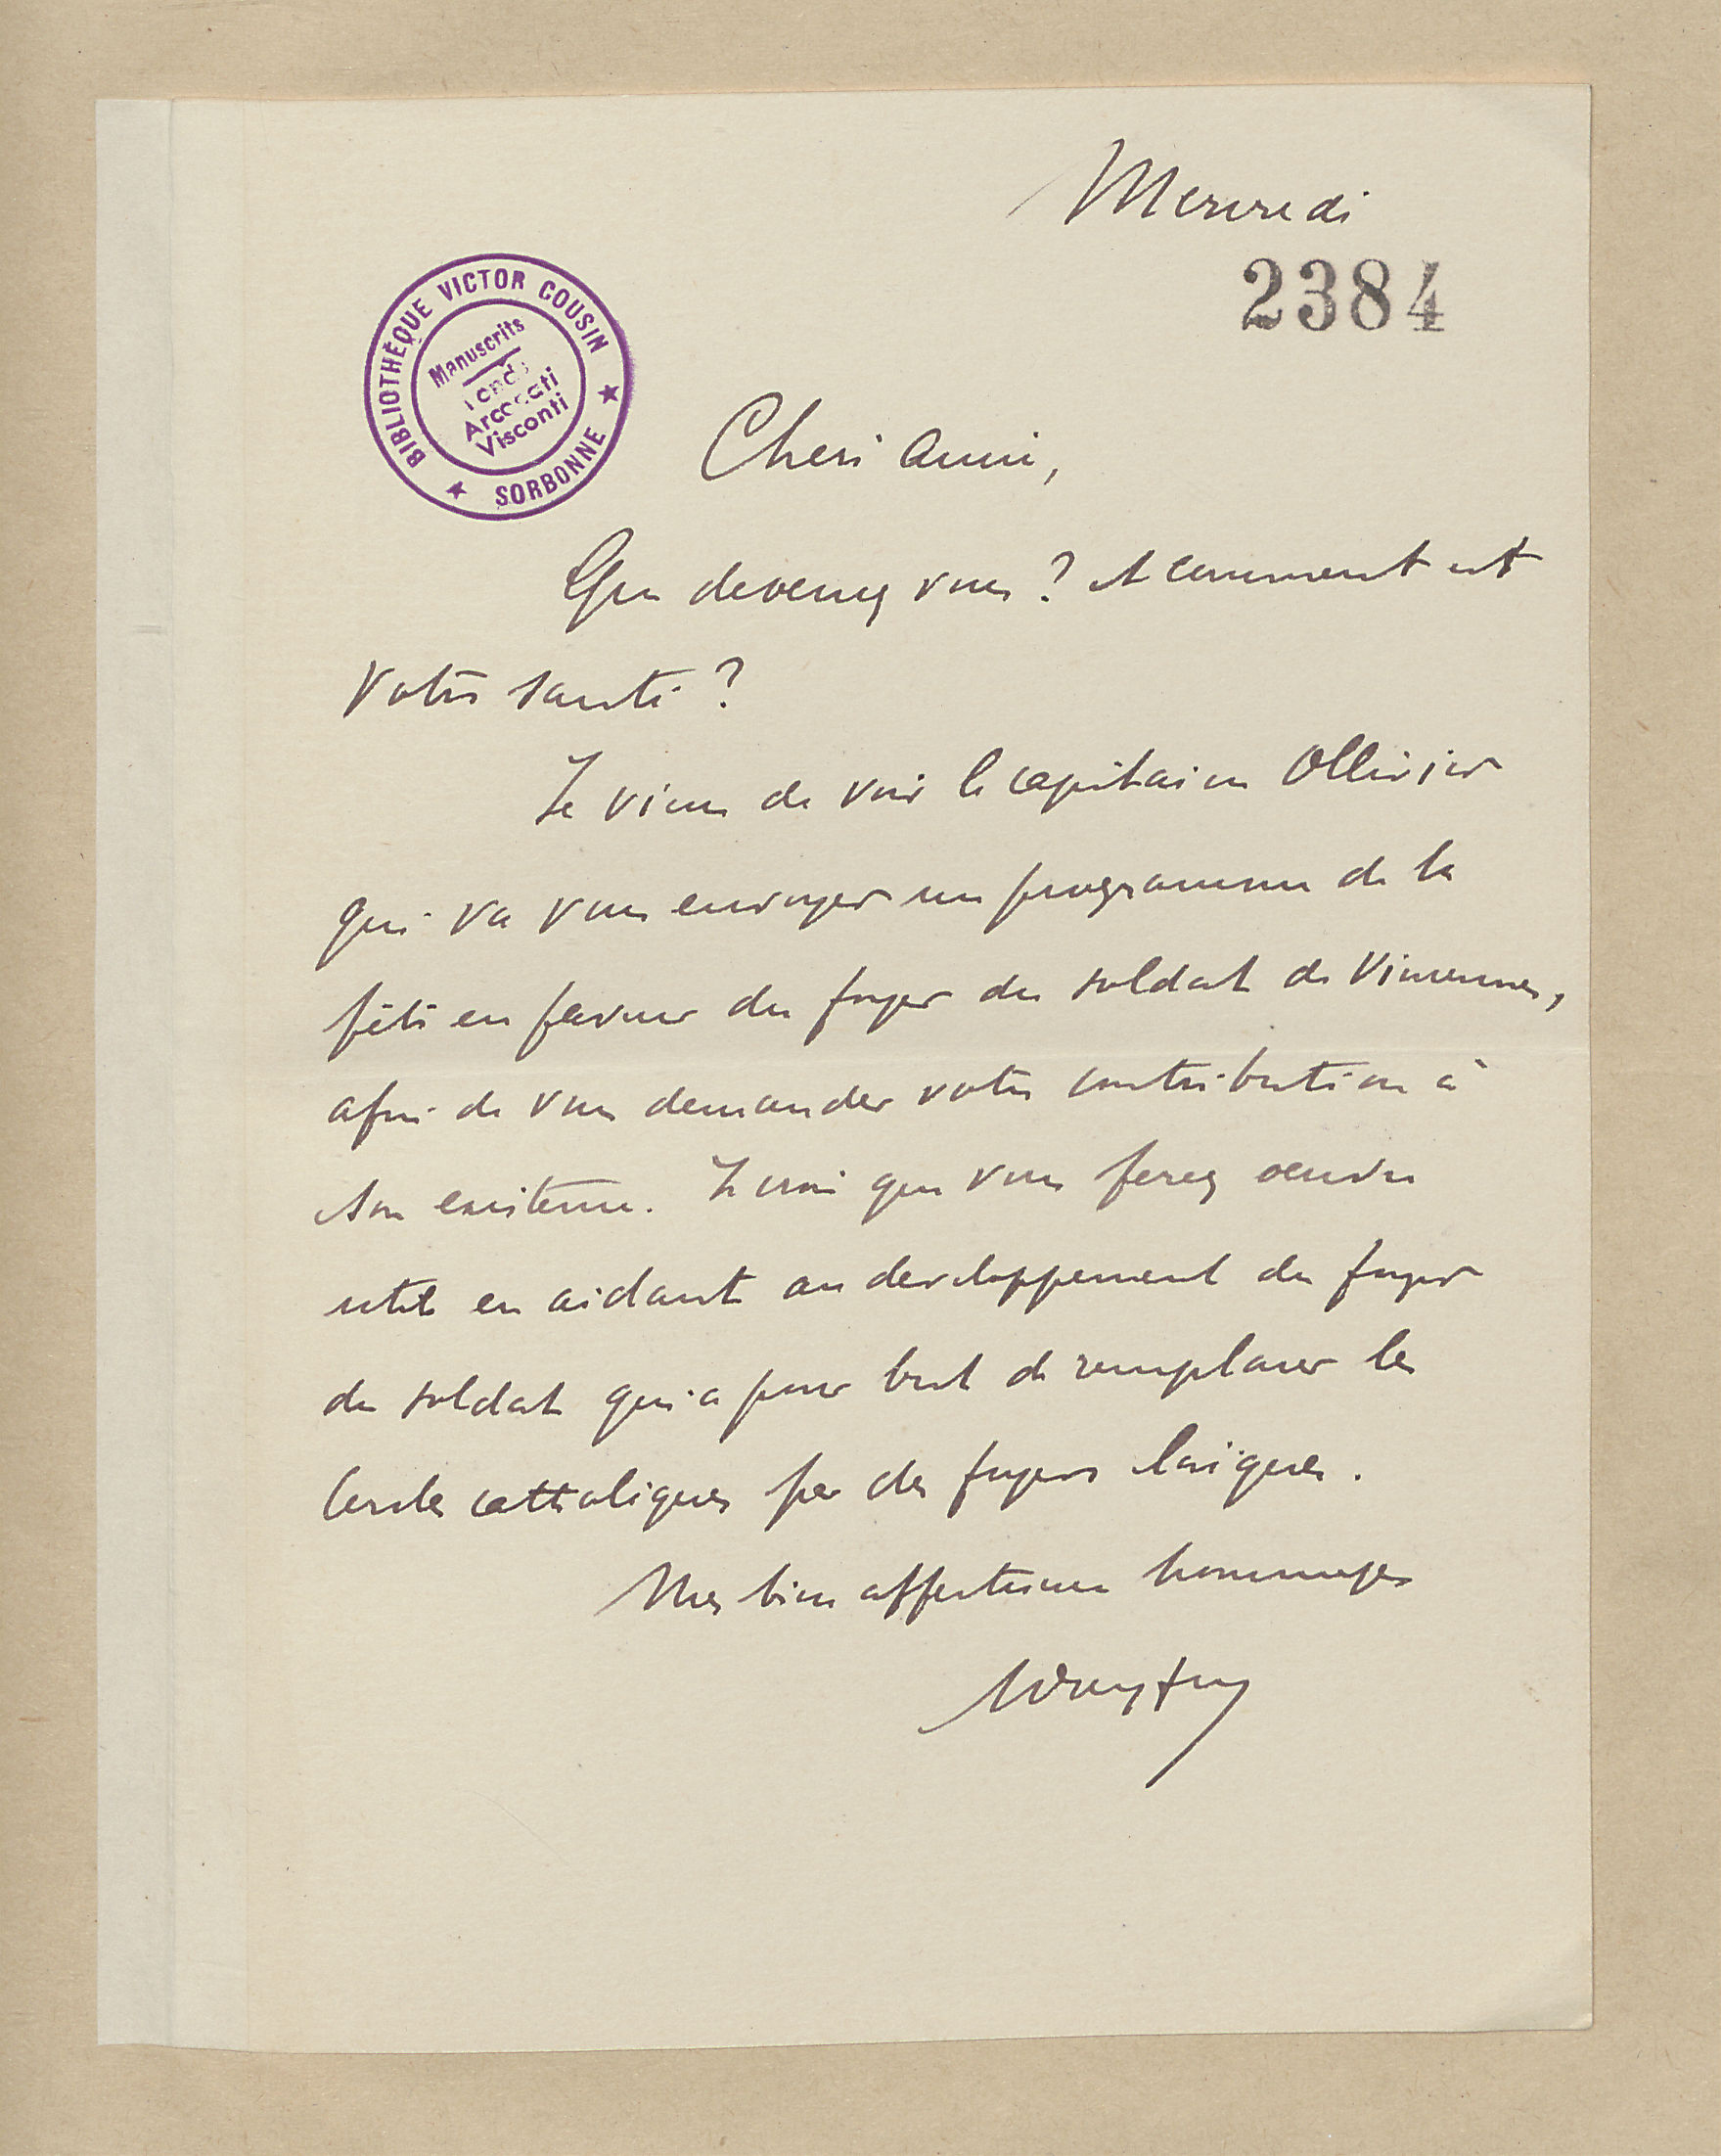 Mercredi
2384
BIBLIOTHÈQUE VICTOR COUSIN
SORBONNE
Manuscrits
Fonds
Arconati
Visconti
Chère amie,
Que devenez vous ? et comment est
votre santé ?
Je viens de voir le capitaine Ollivier
qui va vous envoyer un programme de la
fête en faveur du foyer du soldat de Vincennes,
afin de vous demander votre contribution à
son existence. Je crois que vous ferez œuvre
utile en aidant au développement du foyer
du soldat qui a pour but de remplacer les
Cercles catholiques par des foyers laïques.
Mes bien affectueux hommages
ADreyfus